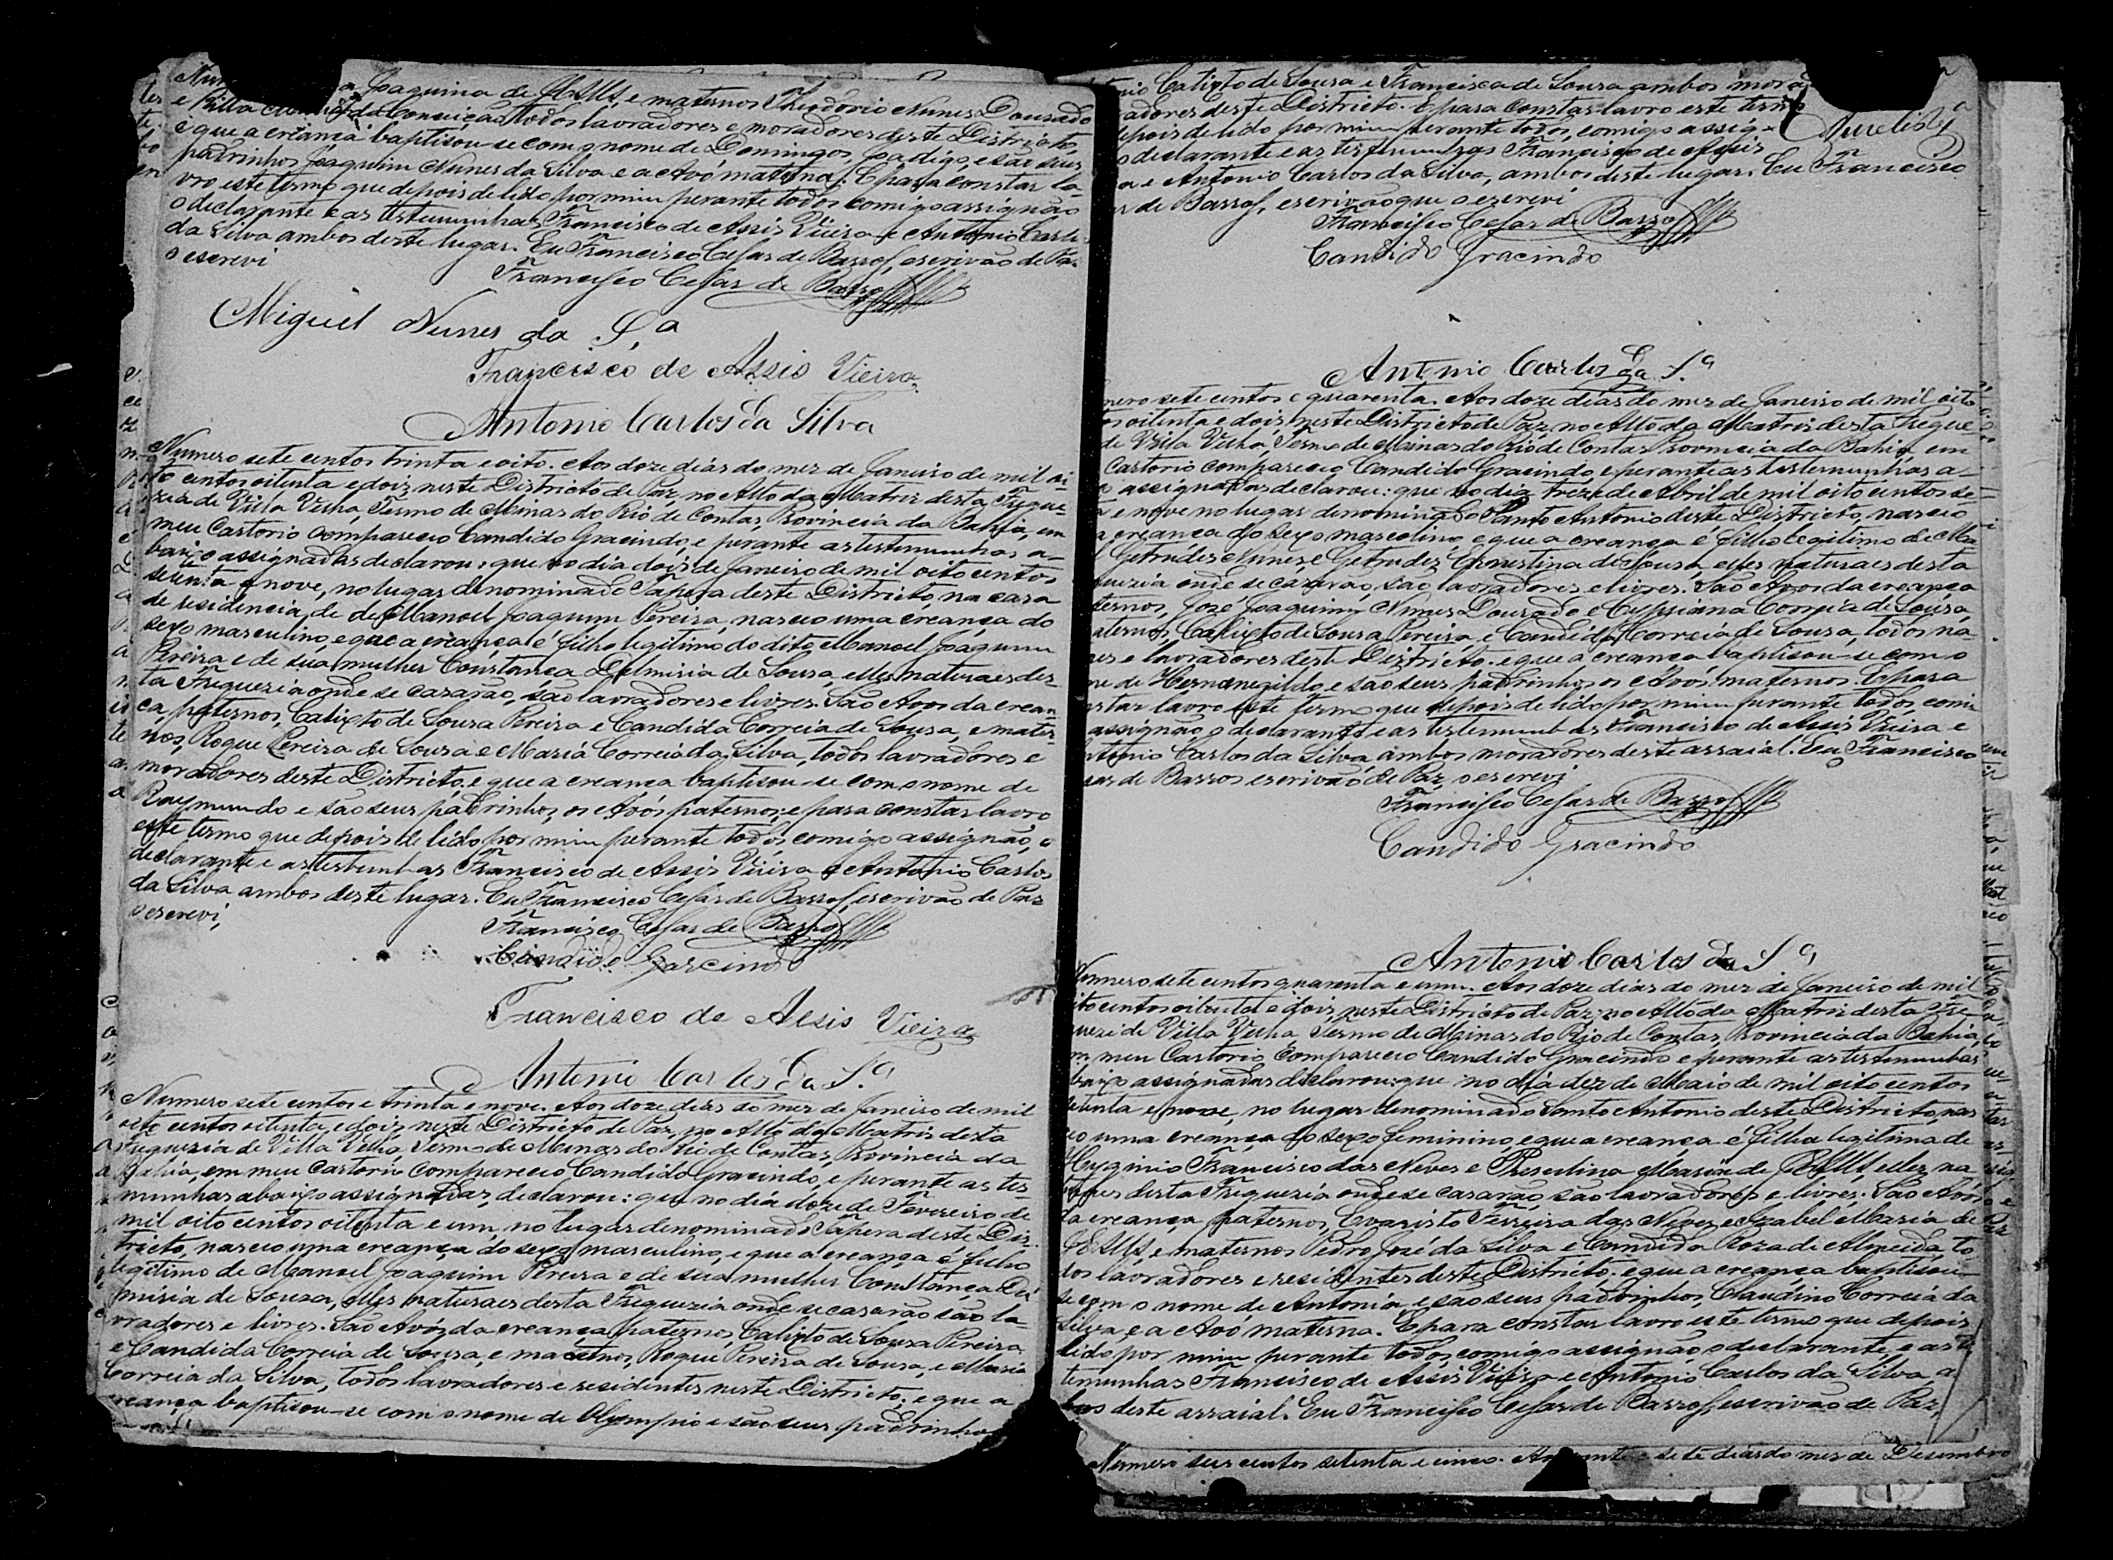 Joaquina de Jesus, e maternos Theodorio Nunes Dourado
e Ritta da Conceição todos lavradores e moradores deste Districto,
e que a creança baptisou-se com o nome de Domingos, ja digo, e são seus
padrinhos Joaquim Nunes da Silva e a Avó materna. E para constar la-
vro este termo que depois de lido por mim perante todos comigo assignão
o declarante e as testemunhas Francisco de Assis Vieira e Antonio Carlos
da Silva ambos deste lugar. Eu Francisco Cesar de Barros, escrivão de Paz
o escrevi
Francisco Cesar de Barros
Miguel Nunes da Sa
Francisco de Assis Vieira
Antonio Carlos da Silva
Numero sete centos trinta e oito. Aos doze dias do mez de Janeiro de mil oi-
to centos oitenta e dois, neste Districto de Paz, no Alto da Matris desta Fregue-
zia de Villa Velha, Termo de Minas do Rio de Contas, Provincia da Bahia, em
meu Cartorio compareceo Candido Gracindo, e perante as testemunhas a-
baixo assignadas declarou, que no dia dois de Janeiro de mil oito centos
setenta e nove, no lugar denominado Tapera deste Districto, na casa
de residencia, de de Manoel Joaquim Pereira, nasceo uma creança do
sexo masculino, e que a creança é filho legitimo do dito Manoel Joaquim
Pereira e de sua mulher Constança Delmiria de Sousa, elles naturaes des-
ta Freguezia onde se casarão, são lavradores e livres. São Avos da crean-
ça, paternos, Calixto de Sousa Pereira e Candida Correia de Sousa, e mater-
nos, Roque Pereira de Sousa e Maria Correia da Silva, todos lavradores e
moradores deste Districto, e que a creança baptisou-se com o nome de
Raymundo e são seus padrinhos os Avós paternos, e para constar lavro
este termo que depois de lido por mim perante todos, comigo assignão, o
declarante e as testemunhas Francisco de Assis Vieira e Antonio Carlos
da Silva ambos deste lugar. Eu Francisco Cesar de Barros, escrivão de Paz
o escrevi,
Francisco Cesar de Barros
Candido Garcindo
Francisco de Assis Vieira
Antonio Carlos da Sa
Numero sete centos e trinta e nove. Aos doze dias do mez de Janeiro de mil
oito centos oitenta e dois, neste Districto de Paz, no Alto da Matris desta
Freguezia de Villa Velha, Termo de Minas do Rio de Contas, Provincia da
Bahia, em meu Cartorio compareceo Candido Gracindo, e perante as tes-
munhas abaixo assignadas, declarou: que no dia doze de Fevereiro de
mil oito centos oitenta e um, no lugar denominado Tapera deste Dis-
tricto, nasceo uma creança do sexo masculino, e que a creança é filho
legitimo de Manoel Joaquim Pereira e de sua mulher Constança Del
miria de Souza, elles naturaes desta Freguezia onde se casarão são la-
vradores e livres. São Avós da creança, paternos, Calixto de Sousa Pereira
e Candida Correia de Sousa, e maternos, Roque Pereira de Sousa, e Maria
Correia da Silva, todos lavradores e residentes neste Districto, e que a
creança baptisou-se com o nome de Olympio e são seus padrinhos
Calixto de Sousa e Francisca de Sousa ambos
adores deste Districto. E para constar lavro este termo
depois de lido por mim perante todos, comigo assig-
o declarante e as testemunhas Francisco de Assis
a e Antonio Carlos da Silva, ambos deste lugar. Eu Francisco
ar de Barros, escrivão que o escrevi
Francisco Cesar de Barros
Candido Gracindo
Antonio Carlos da Sa
mero sete centos e quarenta. Aos doze dias do mez de Janeiro de mil oito
os oitenta e dois, neste Districto de Paz, no Alto da Matris desta Fregue-
de Villa Velha, Termo de Minas do Rio de Contas Provincia da Bahia, em
Cartorio compareceo Candido Gracindo, e perante as testemunhas a-
assignadas declarou: que no dia treze de Abril de mil oito centos se-
a e nove no lugar denominado Santo Antonio deste Districto, nasceo
a creança do sexo masculino e que a creança é filho legitimo de Ma
Getrudes Nunes e Getrudes Ernestina de Sousa, elles naturaes desta
guezia onde se cazarão, são lavradores e livres. São Avos da creança
ternos, Joze Joaquim Nunes Dourado e Cypriana Correia de Sousa,
aternos, Calixto de Sousa Pereira, e Candida Correia de Sousa, todos na
es e lavradores deste Districto. e que a creança baptisou-se com o
me de Hermenegildo, e são seus padrinhos os Avós maternos. E para
star lavro este termo que depois de lido por mim perante todos, comi
assignão, o declarante e as testemunhas Francisco de Assis Vieira e
ntonio Carlos da Silva, ambos moradores deste arraial. Eu Francisco
sar de Barros escrivão de Paz, o escrevi
Francisco Cesar de Barros
Candido Gracindo
Antonio Carlos da Sa
Numero sete centos quarenta e um. Aos doze dias do mez de Janeiro de mil
oito centos oitenta e dois, neste Districto de Paz, no Alto da Matris desta Fre-
guezi de Villa Velha, Termo de Minas do Rio de Contas, Provincia da Bahia,
em meu Cartorio, Compareceo Candido Gracindo e perante as testemunhas
baixo assignadas declarou: que no dia dez de Maio de mil oito centos
setenta e nove, no lugar denominado Santo Antonio deste Districto, nas
ceo uma creança do sexo feminino e que a creança é filha legitima de
Hyginio Francisco das Neves e Presentina Maria de Jesus, elles na
turaes desta Freguezia onde se casarão, são lavradores e livres. São Avós
da creança, paternos, Evaristo Ferreira das Neves e Izabel Maria de
Jesus, e maternos Pedro José da Silva e Candida Roza de Almeida, to
dos lavradores e residentes deste Districto. e que a creança baptisou-
se com o nome de Antonia, e são seus padrinhos, Claudino Correia da
Silva e a Avó materna. E para constar lavro este termo que depois
lido por mim perante todos, comigo assignão, o declarante, e as te
temunhas Francisco de Assis Vieira e Antonio Carlos da Silva, a
bos deste arraial. Eu Francisco Cesar de Barros, escrivão de Paz,
Numero seis centos setenta e cinco. sete dias do mez de Desembro